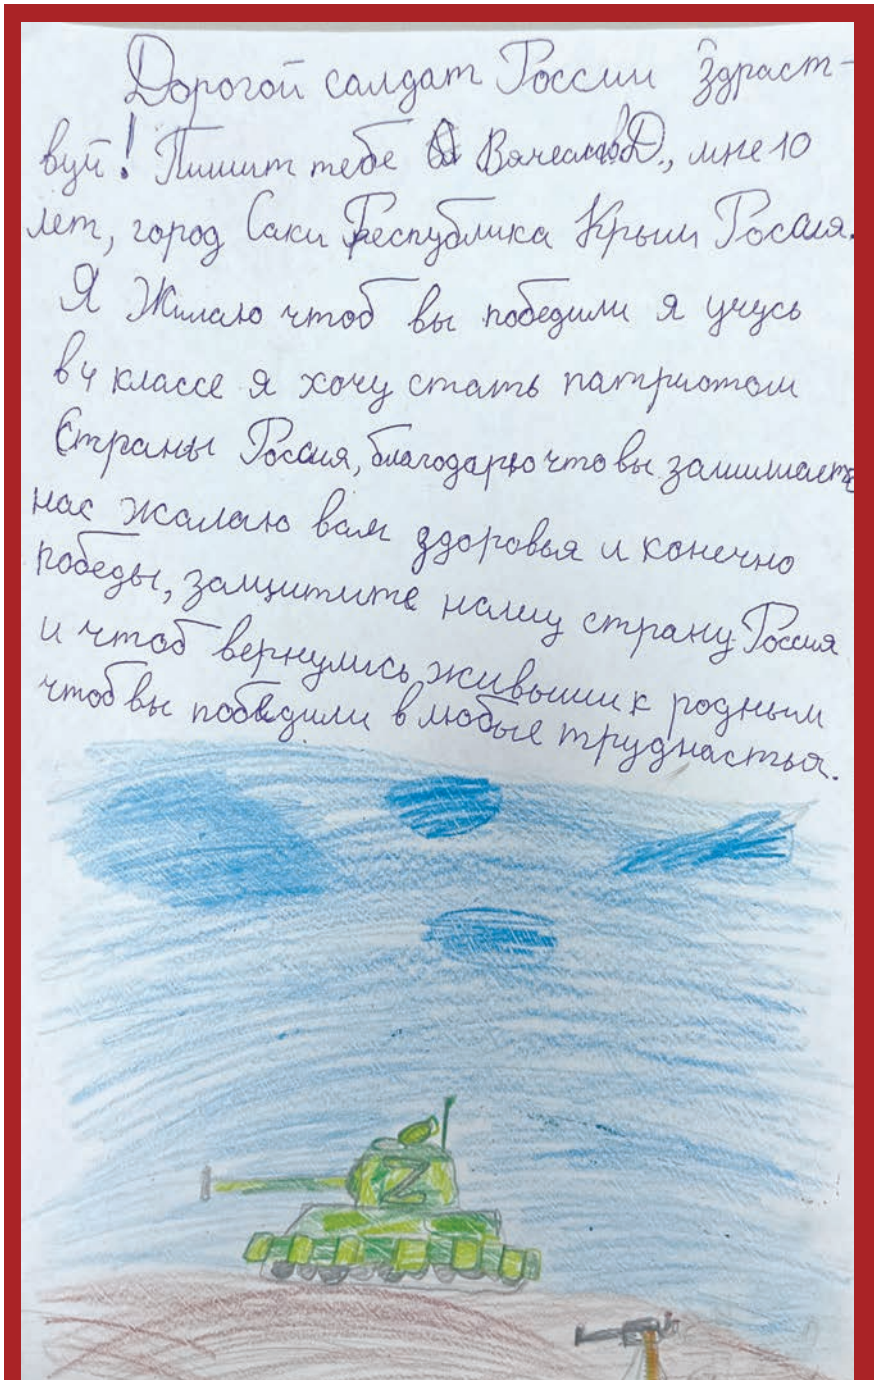 Дорогой салдат России Здраст-
вуй! Пишит тебе Вячеслав Д., мне 10
лет, город Саки Республика Крым Россия.
Я Жилаю чтоб вы победили я учусь
в 4 классе я хочу стать патриотом
Страны Россия, благодарю что вы защищаете
нас жалаю вам здоровья и конечно
победы, защитите нашу страну Россия
и чтоб вернулись живыми к родным
чтоб вы победили в любые труднастья.
Z